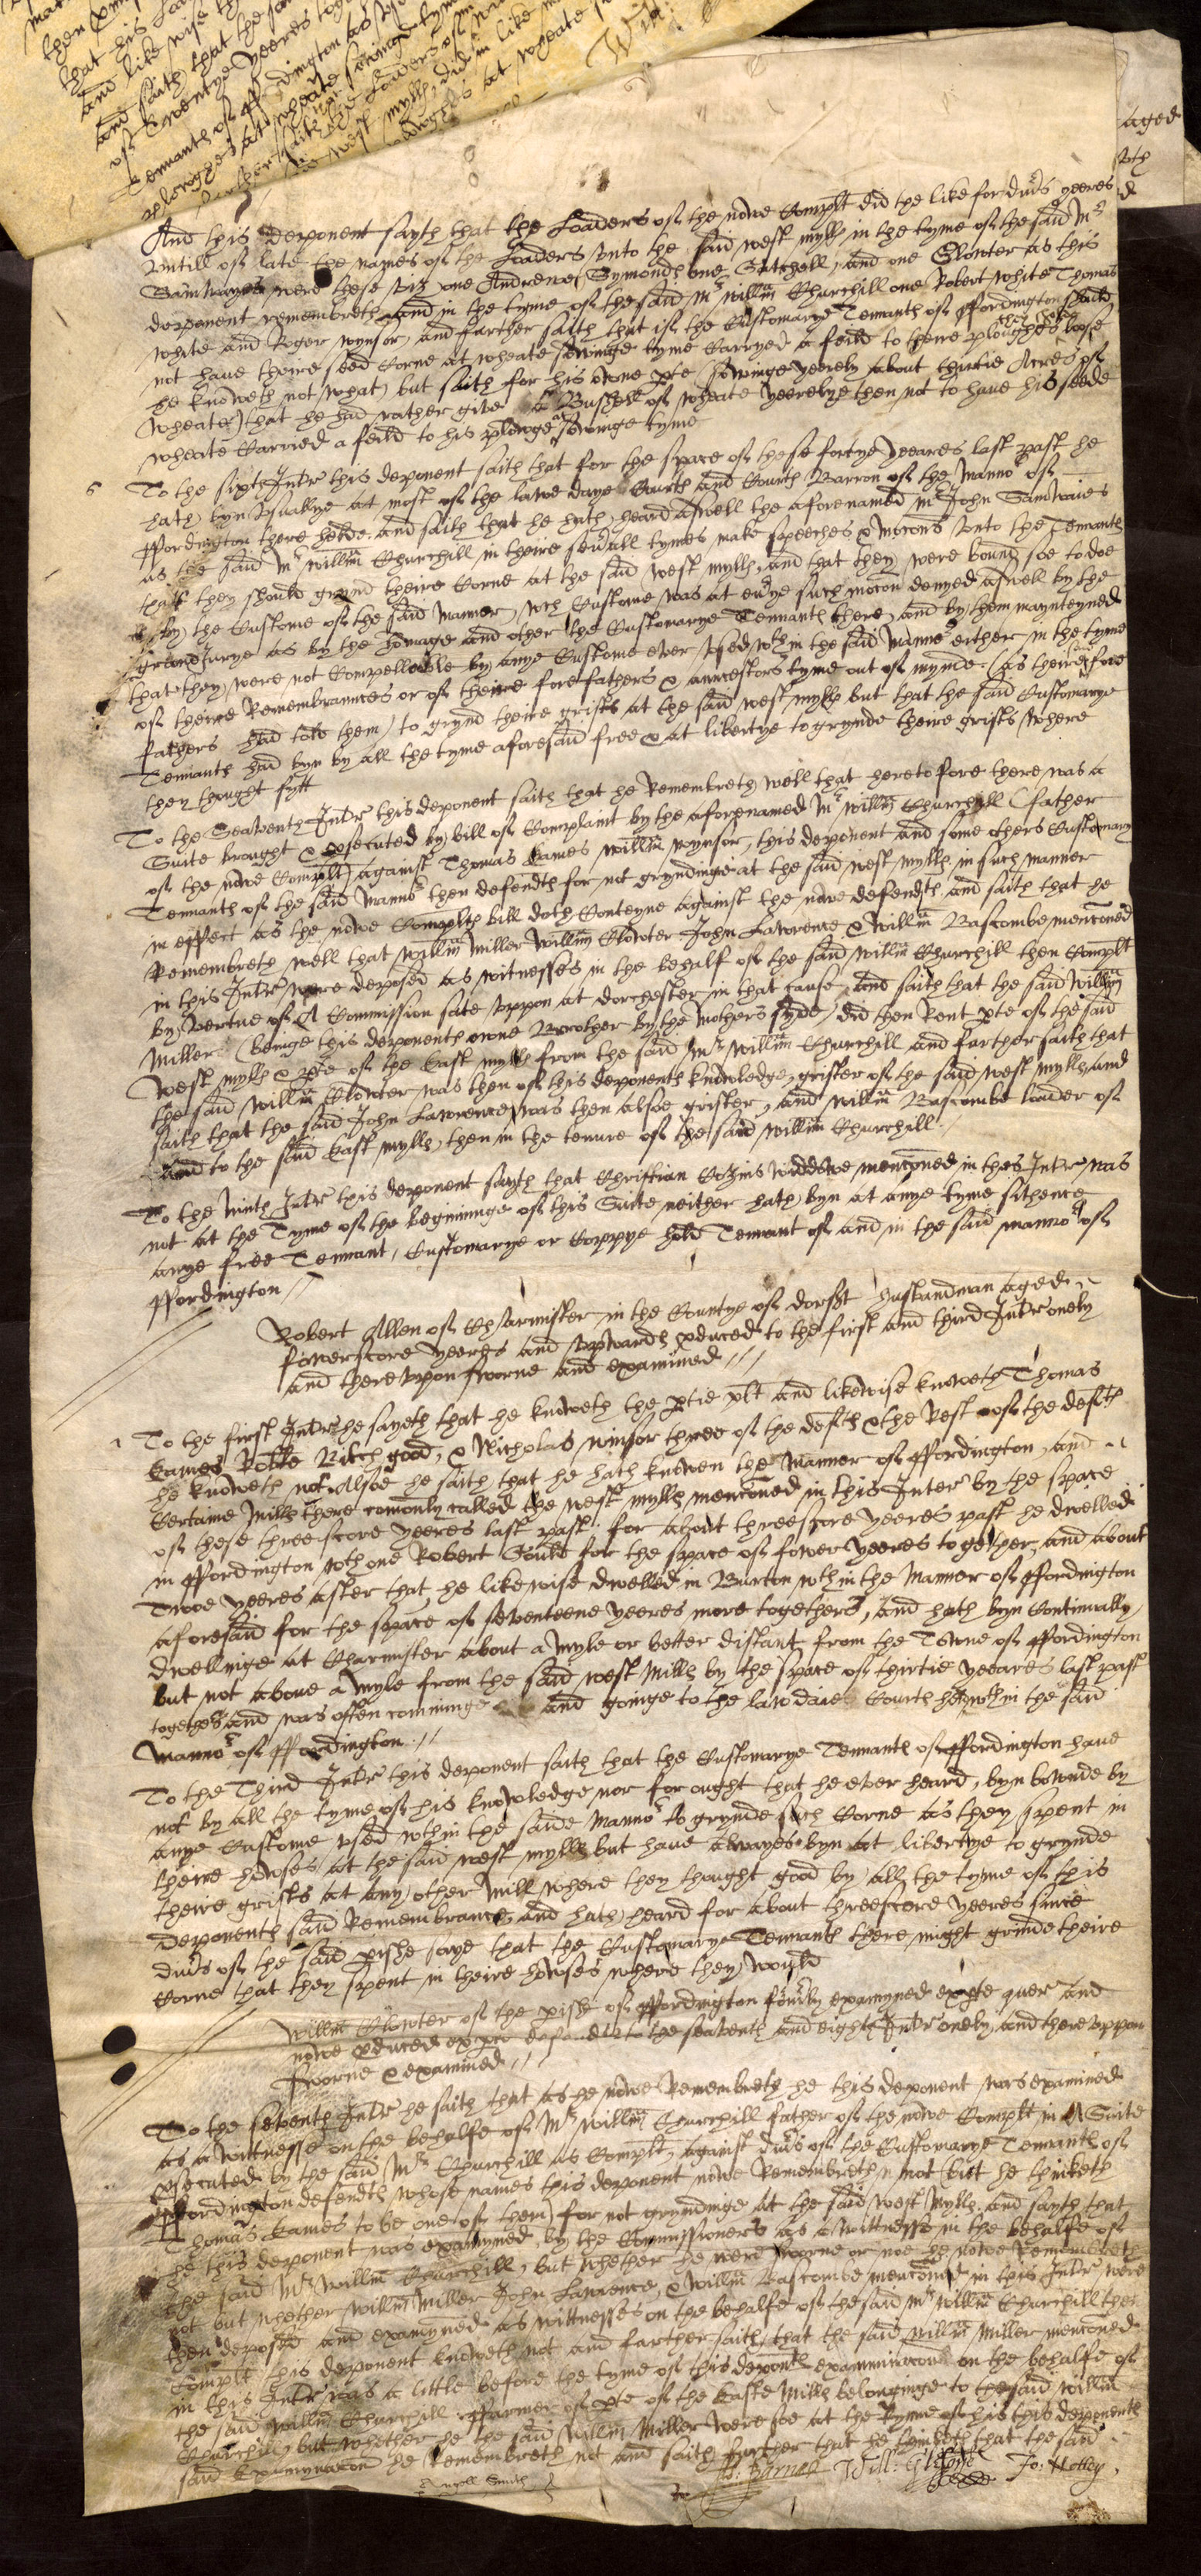 then
that his
and like wise th
and saith that the
of Twentye yeeres tog
Tennantℯ of ffordington as
ploughes at wheate sowinge tyme
farther saith the Loaders of
West myllℯ, did in like
ploughes at wheate
aged
And this deponent sayth that the Loaders of the nowe Complt did the like for divˀs yeeres
Untill of late the names of the Loaders unto the said west myllℯ in the tyme of the said Mr
Samwayes were these viz one Andrewe Symondℯ one Satchell, and one Clowter as this
deponent remembreth and in the tyme of the said Mr Willm̄ Churchill one Robert White Thomas
White and Roger Wynsor, and farther saith that if the Customarye Tennantℯ of ffordington should
not have theire seed Corne at wheate sowinge tyme Carryed a feild to theire ploughes they
he knoweth not what) but saith for his owne pte sowinge yeerely about thirtie Acres of
Wheate) that he had rather give a Bushell of wheate yeerelye then not to have his seede
wheate Carried a feild to his plowge at sowinge tyme
6 To the sixth Intr̄ this deponent saith that for the space of these fortye yeeares last past he
hath byn usuallye at most of the lawe daye Courtℯ and Courtℯ Barron of the Mannor of
ffordington there helde. and saith that he hath heard aswell the aforenamed Mr John Samwaies
as the said Mr Willm̄ Churchill in theire sevˀall tymes make speeches & mocōns unto the Tennantℯ
that they should grynd theire Corne at the said West myllℯ, and that they were bound soe to doe
by the Custome of the said Mannor, wch Custome was at evˀye such mocōn denyed aswell by the
grand Jurye as by the homage and other the Customarye Tennantℯ there, and by them maynteyned
that they were not Compelleable by anye Custome ever used wthin the said Mannor either in the tyme
of theire Remembraunces or of theire forefathers & auncestors tyme out of mynde. (as theire fore
fathers had told them) to grynd theire gristℯ at the said West myllℯ but that the said Customarye
Tennantℯ had byn by all the tyme aforesaid free & at libertye to grynde theire gristℯ where
they thought fytt
To the Seaventh Intr̄ this deponent saith that he Remembreth well that heretofore there was a
Suite brought & psecuted by bill of Complaint by the aforenamed Mr Willm̄ Churchill (father
of the nowe Complt) against Thomas Eames Willm̄ Wynsor, this deponent and some others Customary
Tennantℯ of the said Mannor then defendtℯ for not gryndinge at the said West myllℯ, in such manner
in effect as the nowe Compltℯ bill doth Conteyne against the nowe defendtℯ and saith that he
Remembreth well that Willm̄ Miller Willm̄ Clowter John Lawrence & Willm̄ Bascombe menconed
in this Intr̄ were deposed as witnesses in the behalf of the said Willm̄ Churchill then Complt
by Vertue of A Commission sate uppon at Dorchester in that cause, and saith that the said Willm̄
Miller (beinge this deponentℯ owne Brother by the Mothers syde) did then Rent pte of the said
West myllℯ & pte of the East myllℯ from the said Mr Willm̄ Churchill and farther saith that
the said Willm̄ Clowter was then of this deponentℯ knowledge, grister of the said West myllℯ, and
saith that the said John Lawrence was then alsoe grister, and Willm̄ Bascombe loader of
and to the said East myllℯ, then in the tenure of the said Willm̄ Churchill.
To the Ninth Intr̄ this deponent sayth that Christian Cozins Widdowe menconed in this Intr̄ was
not at the Tyme of the beginninge of this Suite neither hath byn at anye tyme sithence
anye free Tennant, Customarye or Coppye hold Tennant of and in the said manno of
ffordington //
Robert Allen of Charmister in the Countye of Dorset husbandman aged
fowerscore yeeres and upwardℯ pduced to the first and third Intr̄ onely
and thereuppon sworne and examined //
1 To the first Intr̄ he sayeth that he knoweth the ptie plt and likewise knoweth Thomas
Eames Robte Bitchgood, & Nicholas Winsor three of the deftℯ & the Rest of the deftℯ
he knoweth not. Alsoe he saith that he hath knowen the Mannor of ffordington, and
Certaine Millℯ there comonly called the West myllℯ menconed in this Inter by the space
of these three score yeeres last past. for about threescore yeeres past he dwelled
in ffordington wth one Robert for the space of fower yeeres together, and about
Twoe yeeres after that, he likewise dwelled in Burton wthin the Mannor of ffordington
aforesaid for the space of seventeene yeeres more togethers, and hath byn Continually
dwellinge at Charmister about a myle or better distant from the Towne of ffordington
but not above a myle from the said West Millℯ by the space of thirtie yeeares last past
togethers and was often comminge and goinge to the law daies Courtℯ held wthin the said
Mannor of ffordington. //
To the Third Intr̄ this deponent saith that the Customarye Tennantℯ of ffordington have
not by all the tyme of his knowledge nor for ought that he ever heard, byn bownde by
anye Custome used wthin the saide Mannor to grynde such Corne as they spent in
theire howses at the said West myllℯ but have alwayes byn at libertye to grynde
theire gristℯ at any other Mill where they thought good by all the tyme of this
deponentℯ said Remembrance, and hath heard for about threescore yeeres since
divˀs of the said pishe saye that the Customarye Tennantℯ there might grinde theire
Corne that they spent in theire howses where they would
Willm̄ Clowter of the pishe of ffordington formˀly examyned ex pte quer and
nowe pduced ex pte defend to the seaventh and eighth Intr̄ onely and thereuppon
sworne & examined //
To the seventh Intr̄ he saith that as he nowe Remembreth he this deponent was examined
as a wittnesse on the behalfe of Mr Willm̄ Churchill father of the nowe Complt in A Suite
psecuted by the said Mr Churchill as Complt, against divˀs of the Customarye Tennantℯ of
ffordington defendtℯ whose names this deponent nowe Remembreth not (but he thinketh
Thomas Eames to be one of them) for not gryndinge at the said West Myllℯ and sayth that
he this deponent was examyned by the Commissioners as a wittnesse in the behalfe of
the said Mr Willm̄ Churchill, but whether he were sworne or noe he nowe Remembreth
not but whether Willm̄ Miller John Lawrence, & Willm̄ Bascombe menconed in this Intr̄ were
then deposed and examyned as wittnesses on the behalfe of the said Mr Willm̄ Churchill then
Complt this deponent knoweth not and farther saith, that the said Willm̄ Miller menconed
in this Intr̄ was a little before the tyme of this deponentℯ examinacon on the behalfe of
the said Willm̄ Churchill ffarmer of pte of the Easte Millℯ belonginge to the said Willm̄
Churchill, but whether he the said Willm̄ Miller were soe at the Tyme of his this deponentℯ
said Examynacon he Remembreth not and saith further that he thinketh that the said
Angell Smith
Jo: Barnes Will: Jo: Notley